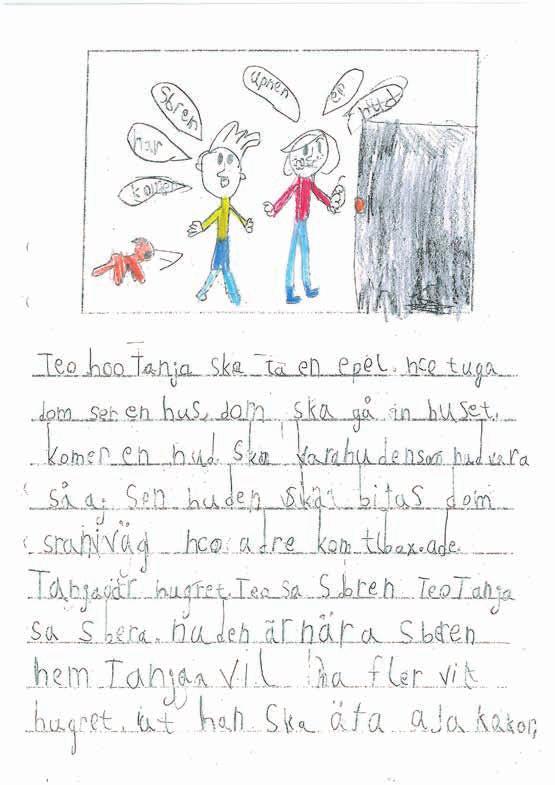 upnen
ep
hud
Sbren
har
komer
Teo hoo Tanja ska ta en epel. hce tuga
dom ser en hus, dom ska gå in huset.
komer en hud. ska vara hudensom hud vara
så aj Sen huden skär bitas dom
sraniväg hco adre kom tlbax.ade.
Tanja är hugret. Teo sa Sbren Teo Tanja
sa Sbera. huden är nära Sbren
hem Tanjan vil ha fler vit
hugret. ut han ska äta ala kakor,